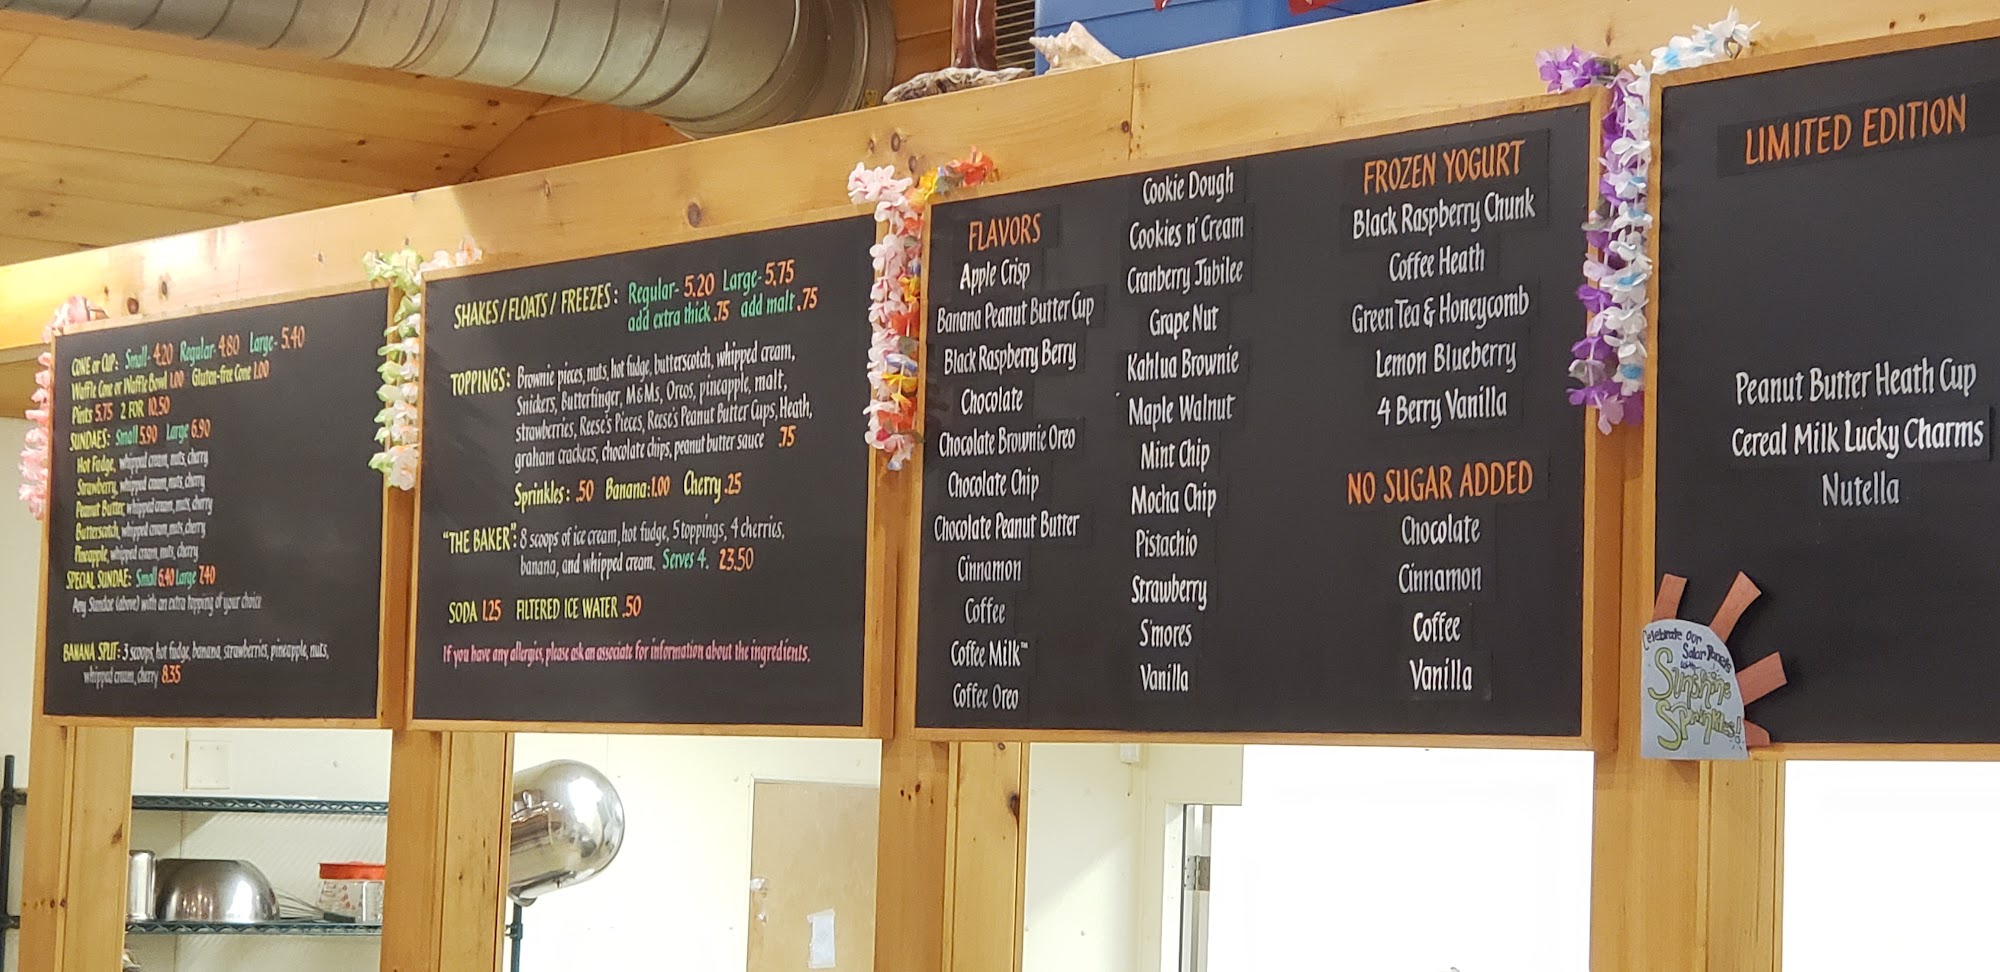 CONE or CUP: Small- 4.20 Regular- 4.80 Large- 5.40
Waffle Cone or Waffle Bowl 1.00 Gluten-free Cone 1.00
Pints 5.75 2 FOR 10.50
SUNDAES: Small 5.90 Large 6.90
Hot Fudge, whipped cream, nuts, cherry
Strawberry, whipped cream, nuts, cherry
Peanut Butter, whipped cream, nuts, cherry
Butterscotch, whipped cream, nuts, cherry
Pineapple, whipped cream, nuts, cherry
SPECIAL SUNDAE: Small 6.40 Large 7.40
Any Sundae (above) with an extra topping of your choice
BANANA SPLIT: 3 scoops, hot fudge, banana, strawberries, pineapple, nuts,
whipped cream, cherry 8.35
SHAKES / FLOATS / FREEZES: Regular- 5.20 Large- 5.75
add extra thick .75 add malt .75
TOPPINGS: Brownie pieces, nuts, hot fudge, butterscotch, whipped cream,
Snickers, Butterfinger, M&Ms, Oreos, pineapple, malt,
strawberries, Reese's Pieces, Reese's Peanut Butter Cups, Heath,
graham crackers, chocolate chips, peanut butter sauce .75
Sprinkles: .50 Banana: 1.00 Cherry .25
"THE BAKER": 8 scoops of ice cream, hot fudge, 5 toppings, 4 cherries,
banana, and whipped cream. Serves 4. 23.50
SODA 1.25 FILTERED ICE WATER .50
If you have any allergies, please ask an associate for information about the ingredients.
FLAVORS
Apple Crisp
Banana Peanut Butter Cup
Black Raspberry Berry
Chocolate
Chocolate Brownie Oreo
Chocolate Chip
Chocolate Peanut Butter
Cinnamon
Coffee
Coffee Milk™
Coffee Oreo
Cookie Dough
Cookies n' Cream
Cranberry Jubilee
Grape Nut
Kahlua Brownie
Maple Walnut
Mint Chip
Mocha Chip
Pistachio
Strawberry
S'mores
Vanilla
FROZEN YOGURT
Black Raspberry Chunk
Coffee Heath
Green Tea & Honeycomb
Lemon Blueberry
4 Berry Vanilla
NO SUGAR ADDED
Chocolate
Cinnamon
Coffee
Vanilla
LIMITED EDITION
Peanut Butter Heath Cup
Cereal Milk Lucky Charms
Nutella
Celebrate our
Solar Panels
with
Sunshine
Sprinkles!